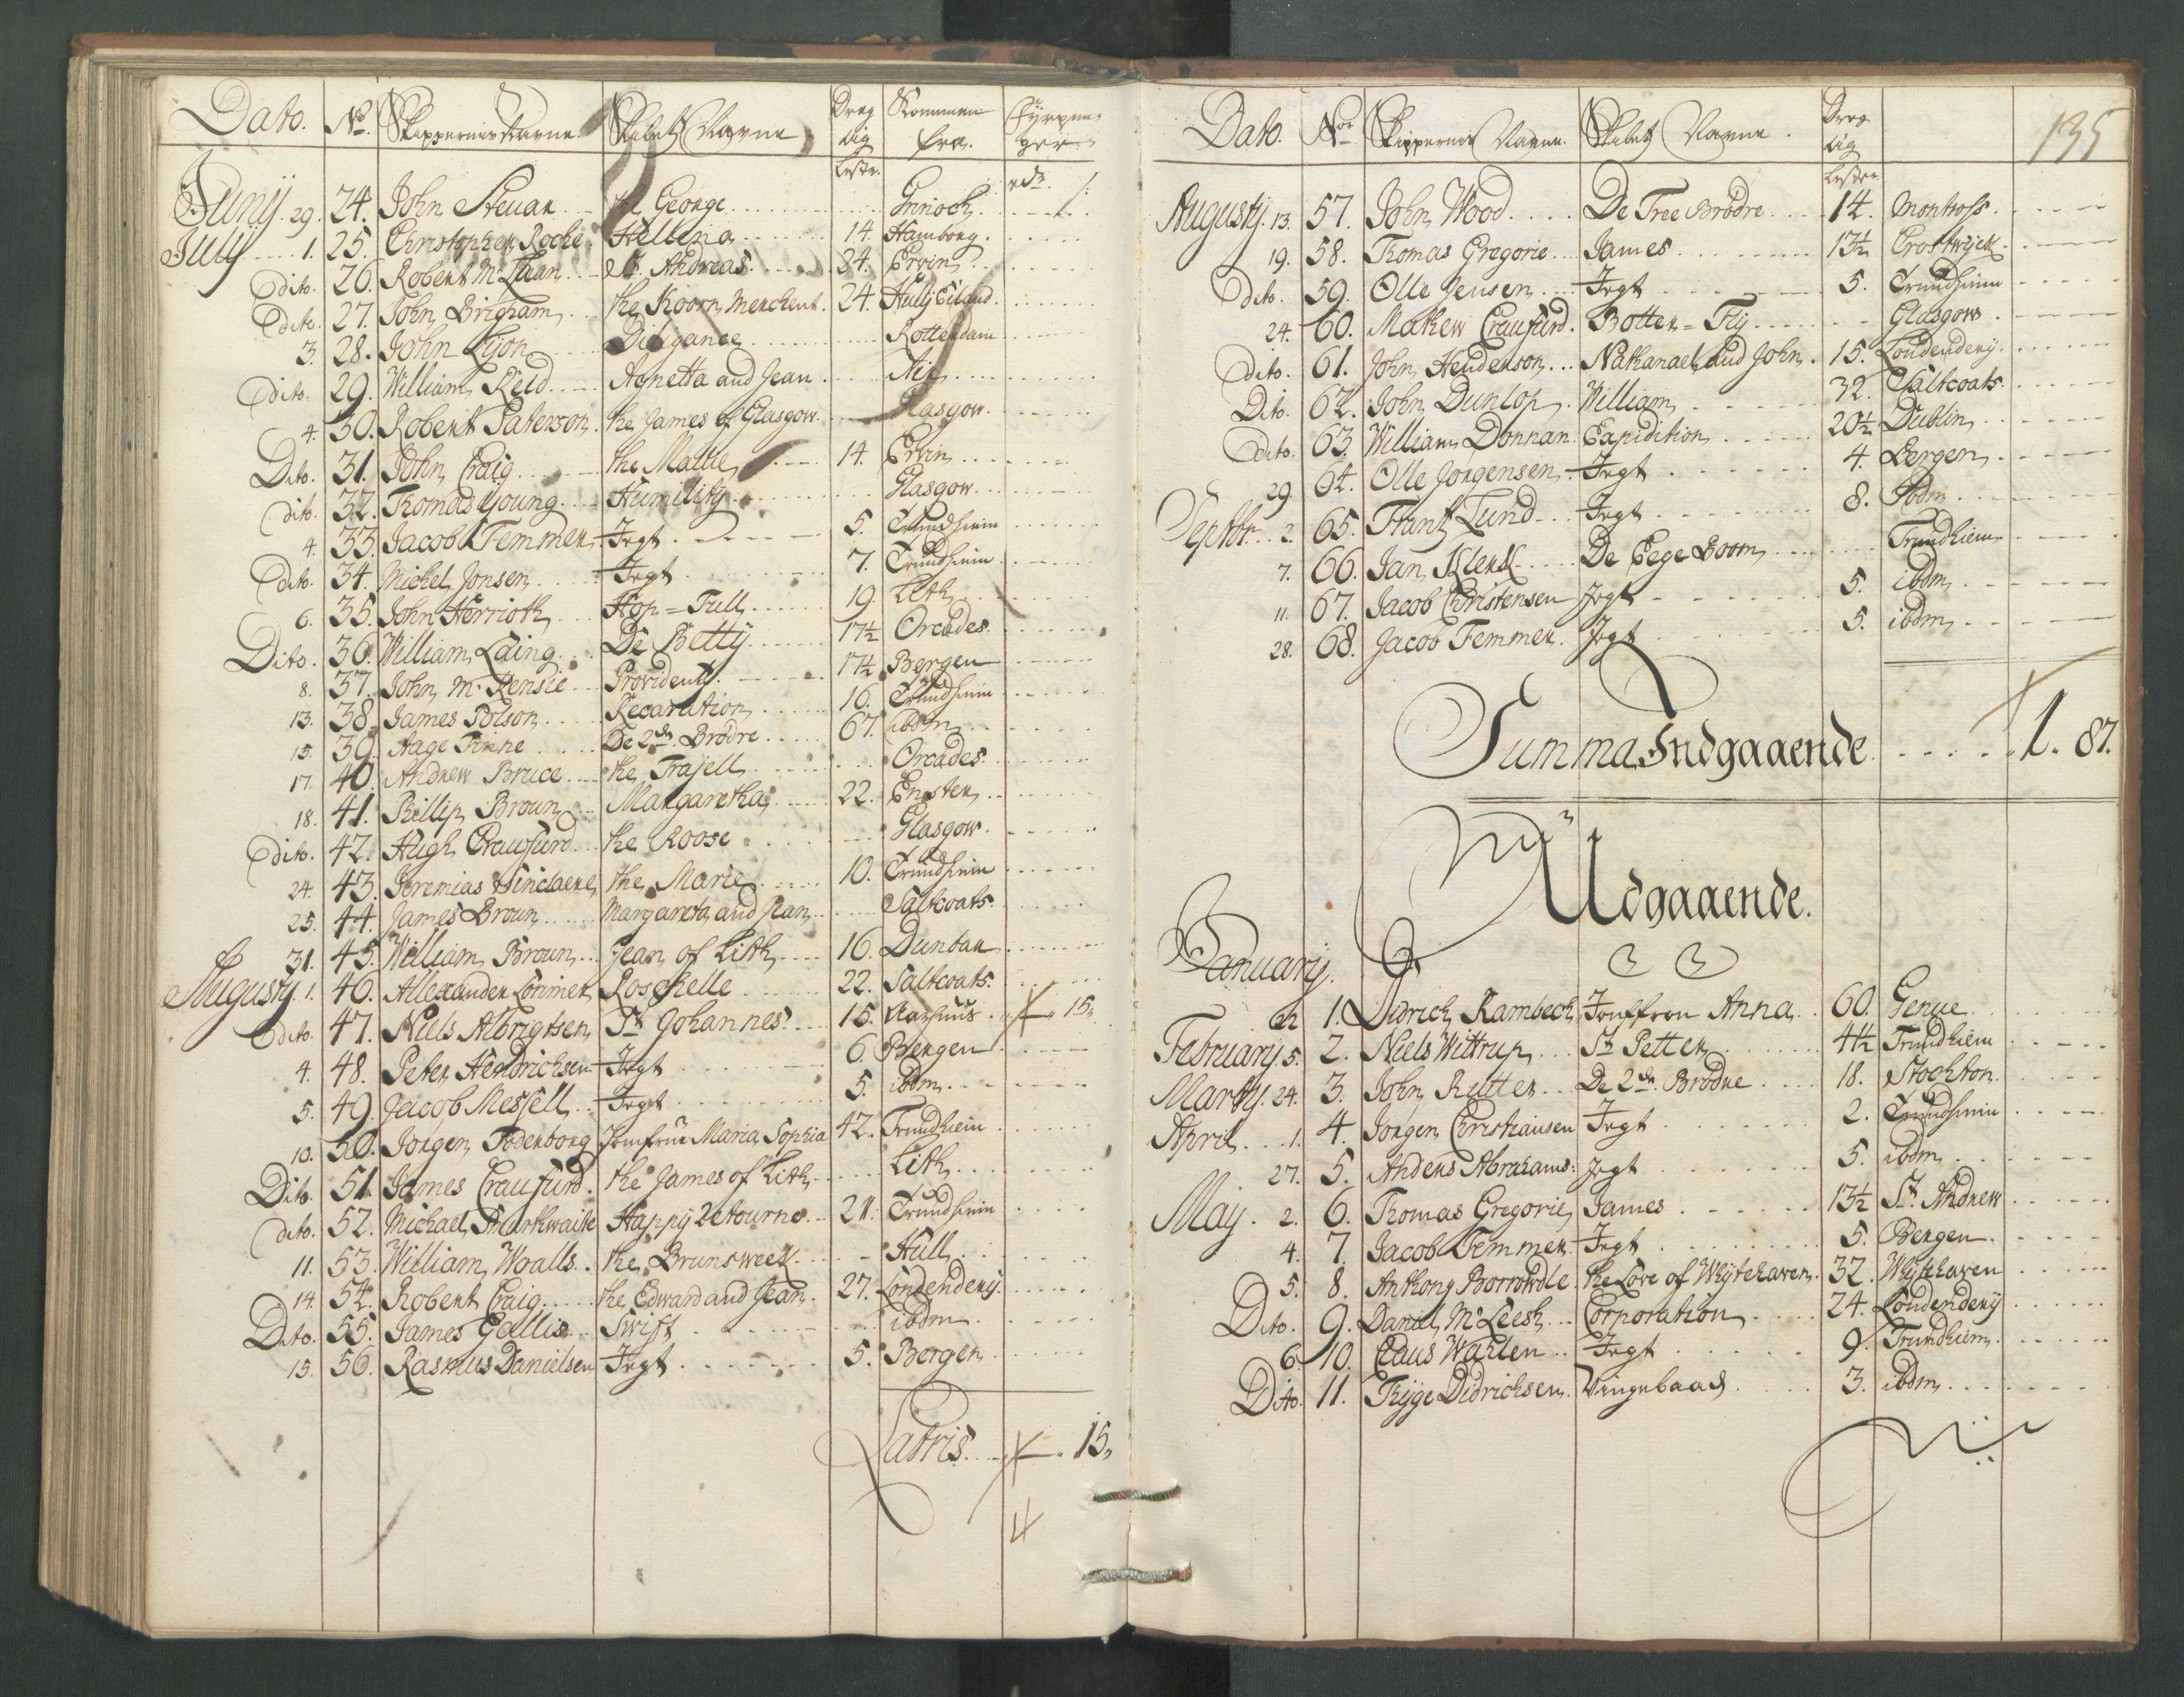 Dato. No. Skippernis Navne. Skibets Navne Dræg Kommen Fyrpen-
tig fra. ger
lester. rdr.
Junij 29. 24. John Steuar the George Grinoch
Julij 1. 25. Christopher Roche Hellena 14. Hamborg.
dito. 26. Robert Mc. Lean St. Andreas. 24. Ervin
dito. 27. John Brigham the Koorn Merchent. 24. Hull
3. 28. John Lyon Diligance Rotterdam
Dito. 29. William Reid Agnetta and Jean Air
4. 30. Robert Paterson. the James of Glasgow. Glasgow.
Dito. 31. John Craig the Mallie 14. Ervin
dito. 32. Thomas Young Humility Glasgow.
4. 33. Jacob Femmer Jegt 5. Trundhiem
Dito. 34. Michel Jonsen Jegt 7. Trundhiem
6. 35. John Herrioth Hop=Full 19. Lith
Dito. 36. William Laing De Betty 17½ Orcades.
8. 37. John Mc. Kensie Provident 17½ Bergen
13. 38. James Polson 16. Trundhiem
15. 39. Aage Finne De 2de. Brødre 67. ibdm
17. 40. Andrew Bruce the Trajell Orcades
18. 41. Phillip Broun Margaretha 22. Enster
dito. 42. Hugh Craufurd the Roose Glasgow.
24. 43. Jeremias Sinclaere the Marie 10. Trundhiem
25. 44. James Broun Margareta and Jean Saltcoats.
31. 45. William Broun Jean of Lith 16. Dunbar
Augusty. 1. 46. Allexander Lorimer Roschelle 22. Saltcoats.
dito. 47. Niels Albrigtsen St. Johannes. 15. Aarhuus 15.
4. 48. Peter Hendrichsen Jegt 6. Bergen
5. 49. Jacob Messell Jegt 5. ibdm
10. 50. Jorgen Fodenborg Jomfrue Maria Sophia 42. Trundhiem
Dito. 51. James Craufurd. the James of Lith Lith
dito. 52. Michael Smarthwaite Happy Retourne 21. Trundhiem
11. 53. William Woalls. the Brunsweck Hull
14. 54. Robert Craig the Edward and Jean. 27. Londendery.
Dito. 55. James Gellis Swift ibdm
15. 56. Rasmus Danielsen Jegt 5. Bergen
Latris 15.
4
135
Dato. Nor Skippernis Navne. Skibets Navne. Dræg
tig
lester.
Augusty. 13. 57. John Wood De Tree Brødre 14. Montross.
19. 58. Thomas Gregorie James 13½
Dito. 59. Olle Jensen Jegt 5. Trundhiem
24. 60. Mathew Craufurd. Botter=Fly Glasgow.
dito. 61. John Henderson Nathanael and John. 15. Londendery.
Dito. 62. John Dunlop William 32. Saltcoats.
dito. 63. William Donnan Expidition 20½ Dublin
29. 64. Olle Jorgensen Jegt 4. Bergen
Septbr. 2. 65. Hans Lund Jegt 8. Ibdm
7. 66. Jan De Eege Boom Trundhiem
11. 67. Jacob Christensen Jegt 5. ibdm
28. 68. Jacob Femmer. Jegt 5. ibdm
Summa Indgaaende 1. 87.
Udgaaende.
January. 1. Didrich Rambech Jomfrou Anna. 60. Genue
February. 5. 2. Niels Wittrup St. Petter 4½ Trundhiem
Marty. 24. 3. John Rutter De 2de. Brødre 18. Stockton
April 1. 4. Jorgen Christiansen Jegt 2. Trundhiem
27. 5. Anders Abrahams: Jegt 5. ibdm
May. 2. 6. Thomas Gregorie James 13½ St. Andrew
4. 7. Jacob Femmer Jegt 5. Bergen.
5. 8. Anthony Borrowdle the Love of Whytehaven. 32. Whytehaven
Dito. 9. Daniel Mc Leesh Corporation 24. Londendery
6. 10. Claus Wahlen Jegt 9. Trundhiem.
Dito. 11. Thyge Didrichsen. Vingebaad 3. ibdm